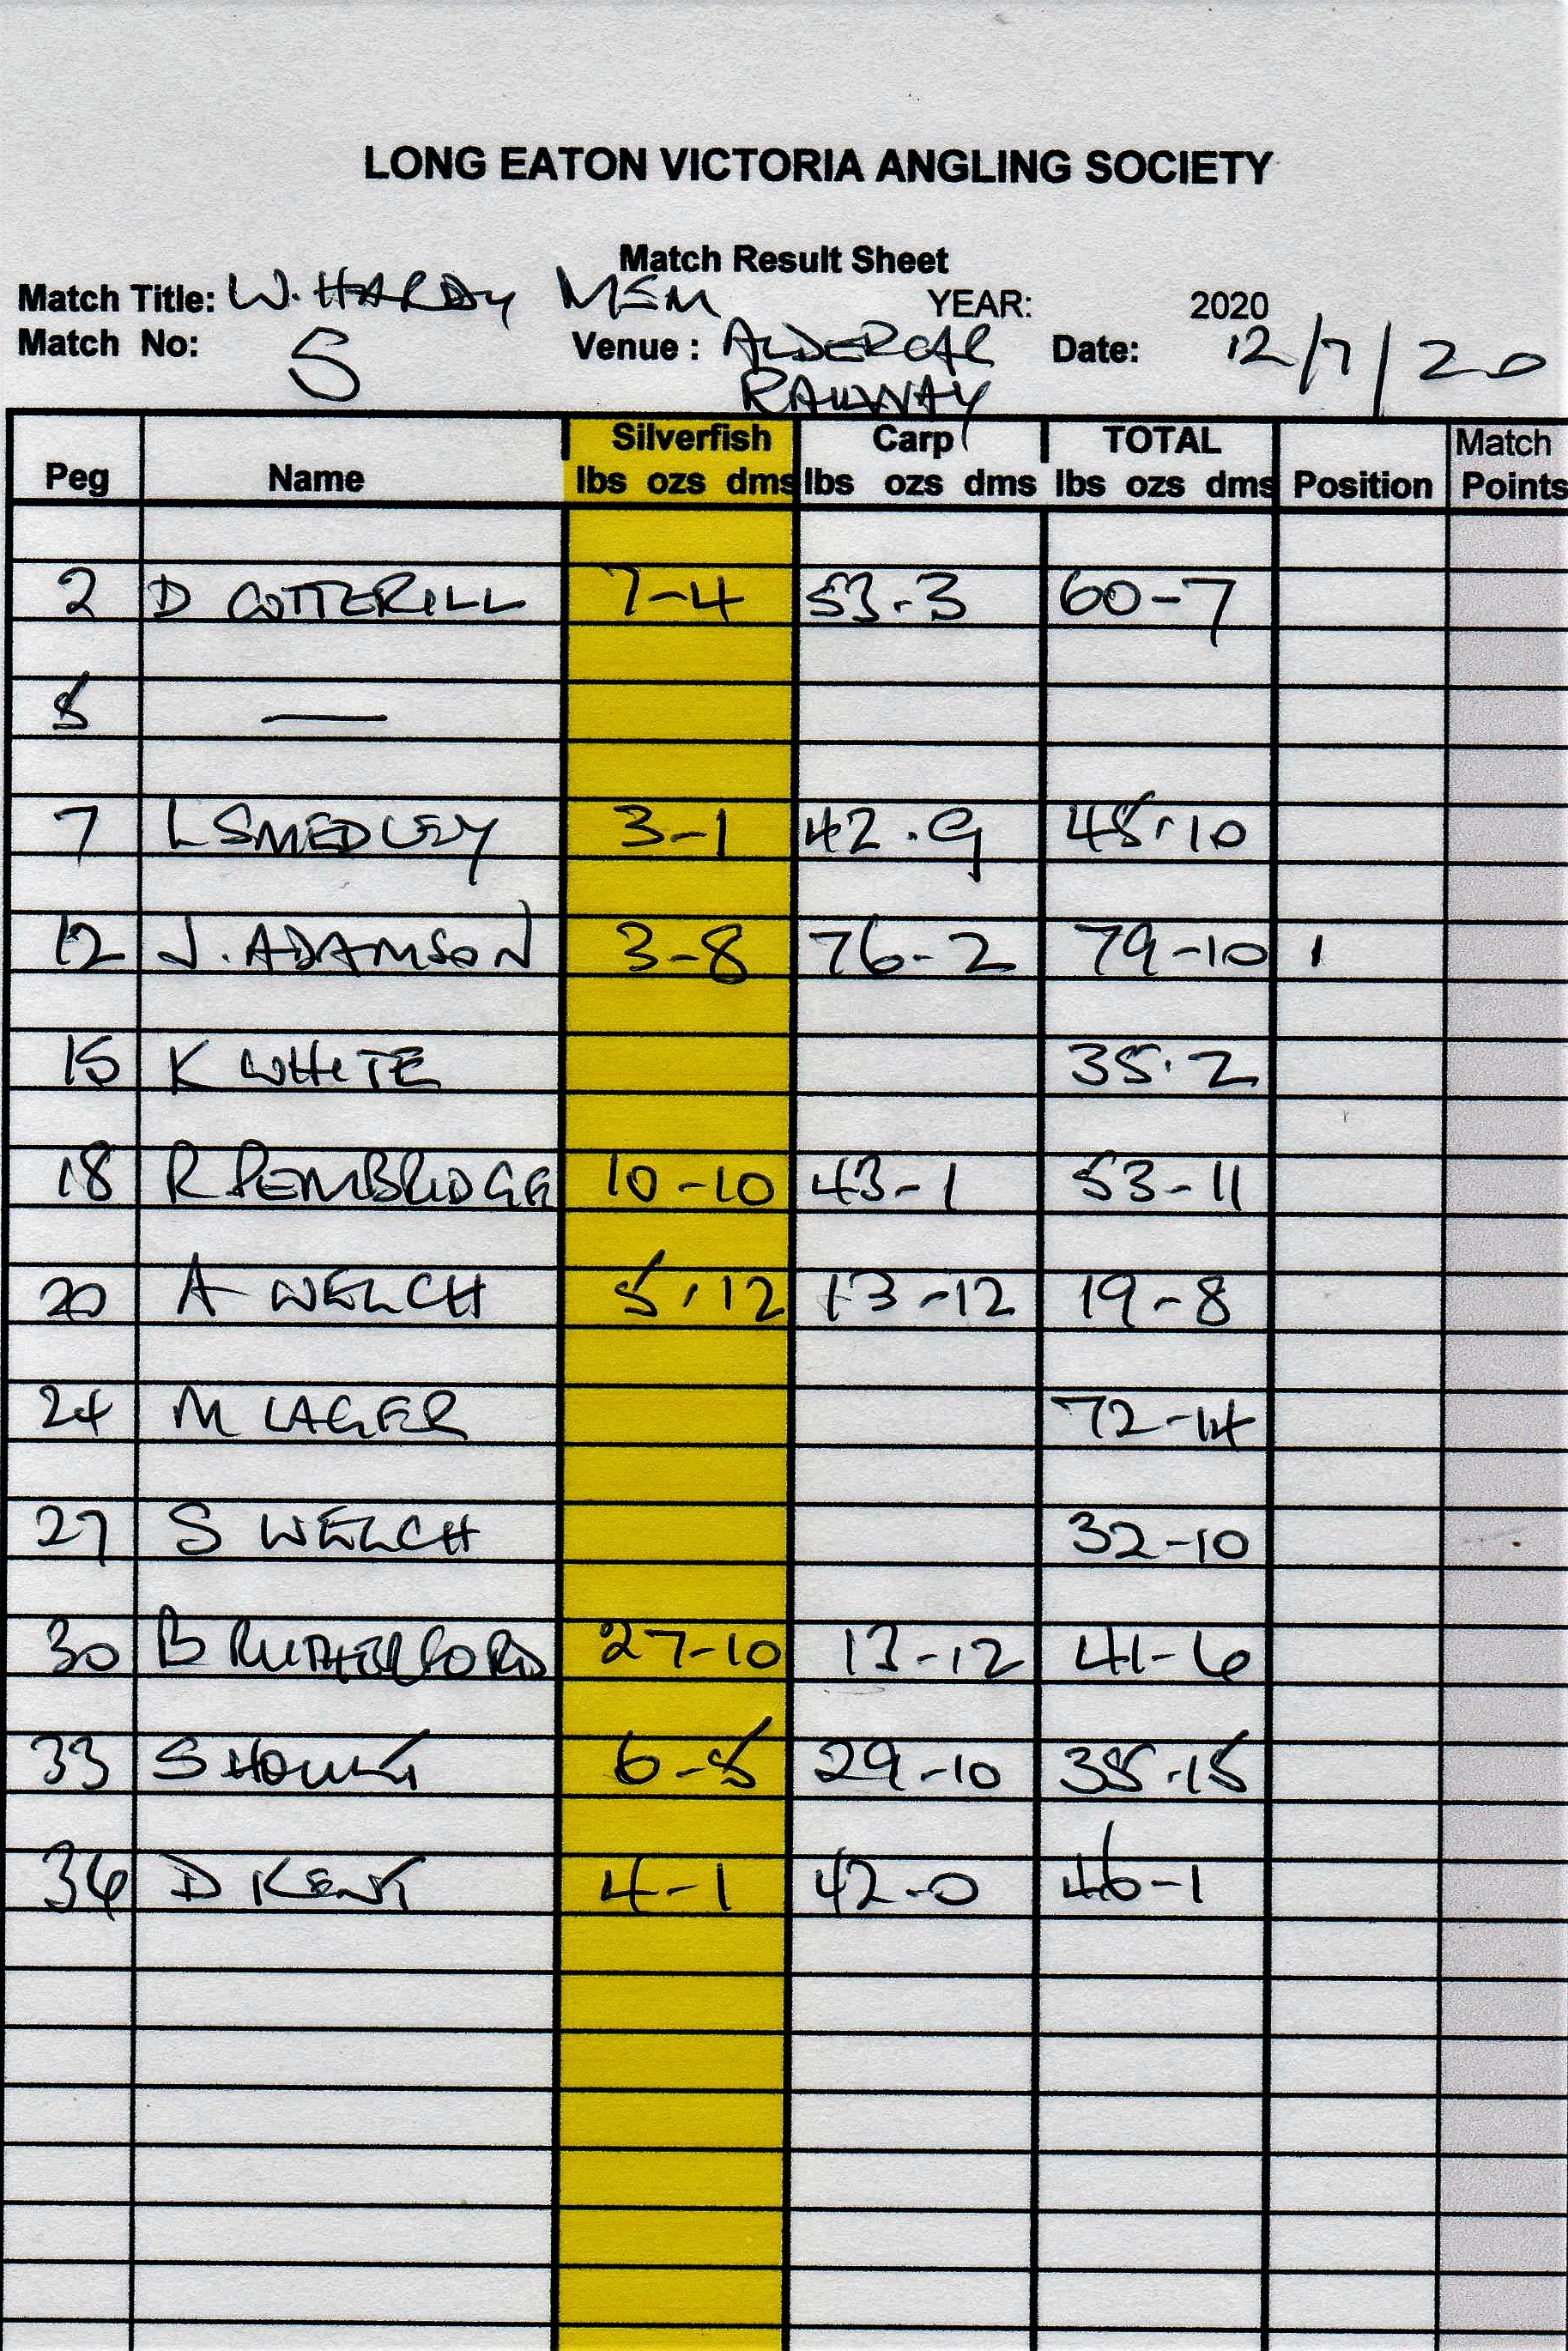 LONG EATON VICTORIA ANGLING SOCIETY
Match Result Sheet
Match Title: W. HARDY MEM YEAR: 2020
Match No: 5 Venue : ALDERCAR RAILWAY Date: 12/7/20
Silverfish Carp TOTAL Match
Peg Name lbs ozs dms lbs ozs dms lbs ozs dms Position Points
2 D COTTERILL 7-4 53-3 60-7
5 —
7 L SMEDLEY 3-1 42.9 45.10
12 J. ADAMSON 3-8 76-2 79-10 1
15 K WHITE 35.2
18 R PEMBRIDGE 10-10 43-1 53-11
20 A WELCH 5.12 13-12 19-8
24 M LAGER 72-14
27 S WELCH 32-10
30 B RUTHERFORD 27-10 13-12 41-6
33 S 6-5 29-10 35.15
36 D KENT 4-1 42-0 46-1